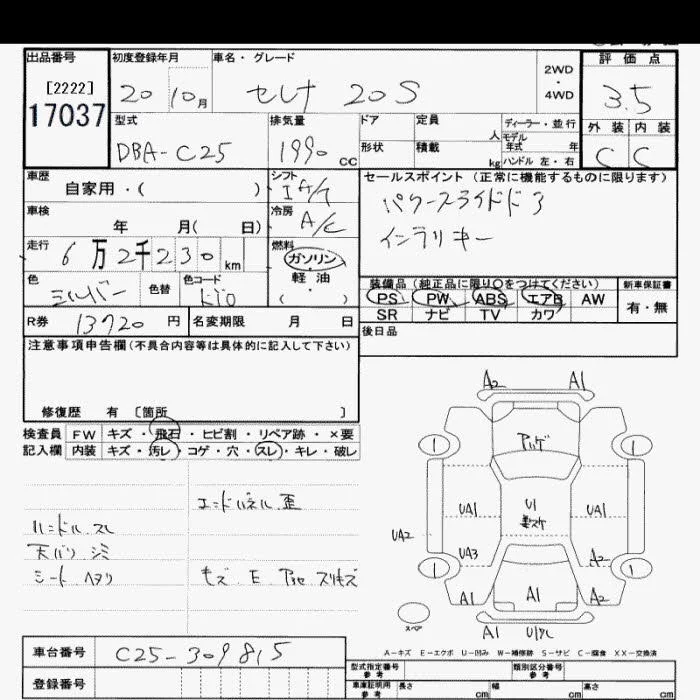 出品番号 初度登録年月 車名・グレード 2WD・4WD 評価点
[2222] 20 10月 セレナ 20S 3.5
17037 型式 排気量 ドア 定員 人 ディーラー・並行 外装 内装
DBA-C25 1990 CC 形状 積載 kg モデル年式 年 ハンドル 左・右 C C
車歴 自家用・( ) シフト IA/T セールスポイント (正常に機能するものに限ります)
車検 年 月( 日) 冷房 A/C パワースライドドア
走行 6万2千230km 燃料 ガソリン・軽油・( ) インテリキー
色 色替 色コード 装備品(純正品に限り○をつけてください) 新車保証書
PS PW ABS エアB AW 有・無
SR ナビ TV カワ
R券 13720円 名変期限 月 日 後日品
注意事項申告欄(不具合内容等は具体的に記入して下さい)
修復歴 有 [箇所 ]
検査員 FW キズ・飛石・ヒビ割・リペア跡・×要
記入欄 内装 キズ・汚レ・コゲ・穴・スレ・キレ・破レ
エンドパネル歪
ハンドル スレ
シート ヘタリ
A2 A1
1 1
UA1 U1 UA1
UA2
UA3 A2
1 1
A1 A1 A2
スペア
A1
A-キズ E-エクボ U-凹み W-補修跡 S-サビ C-腐食 XX-交換済
車台番号 C25-309815 型式指定番号 参考 類別区分番号 参考
登録番号 車庫証明用 参考 長さ cm 幅 cm 高さ cm